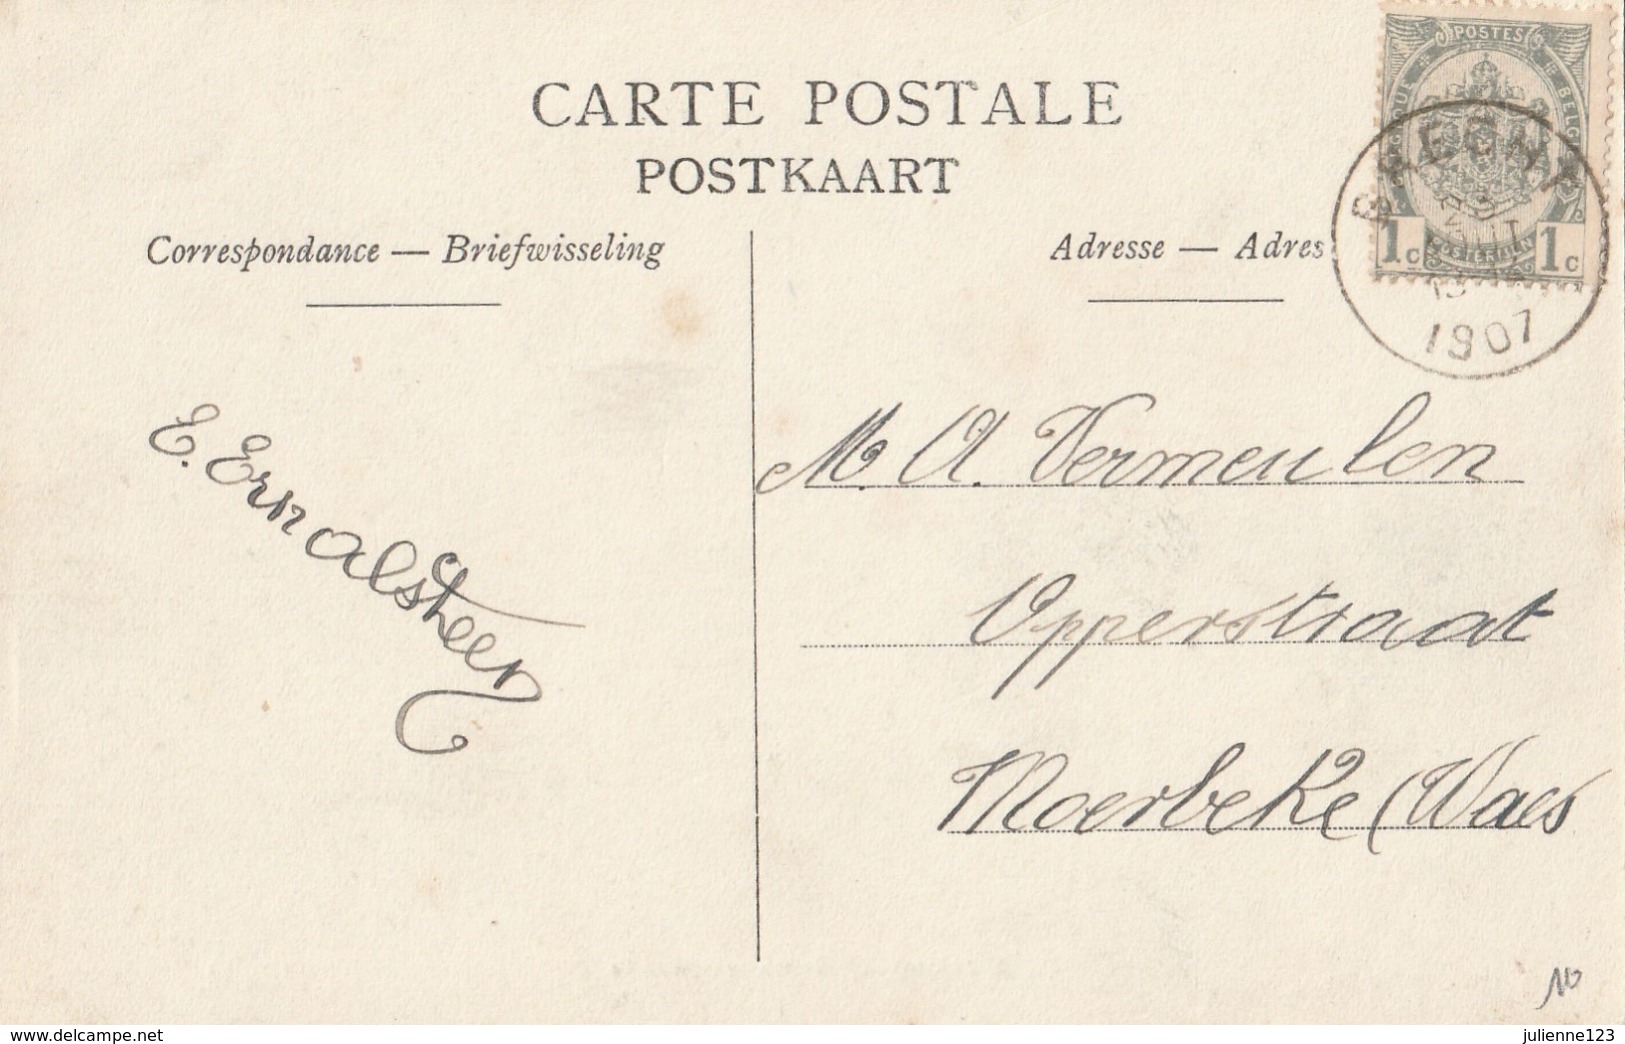 CARTE POSTALE
POSTKAART
Correspondance — Briefwisseling
Adresse — Adres
POSTES
BELGIQUE
BELGI
POSTERIJEN
1c 1c
BRECHT
1907
E. Ernalsteen
M. A. Vermeulen
Opperstraat
Moerbeke (Waes
10
www.delcampe.net
julienne123